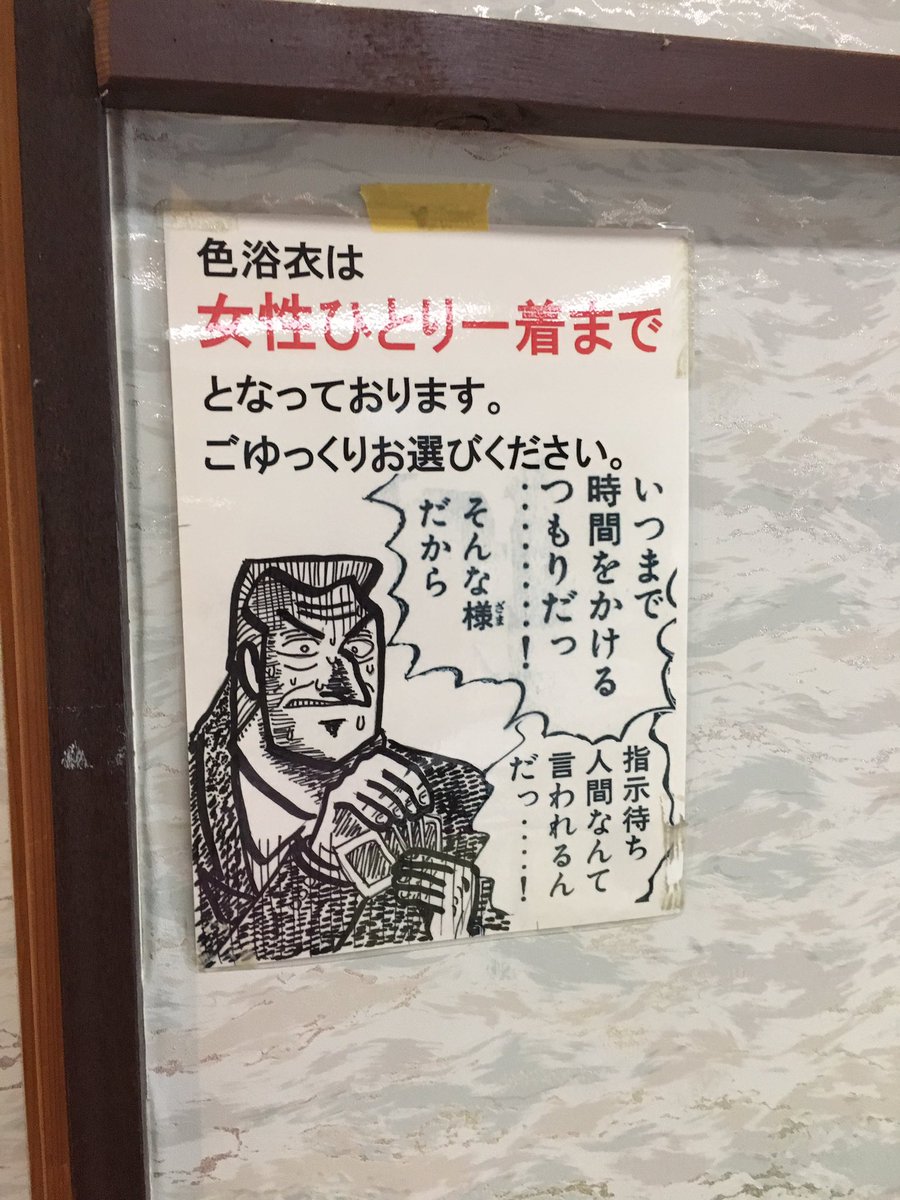 色浴衣は
女性ひとり一着まで
となっております。
ごゆっくりお選びください。
いつまで
時間をかける
つもりだっ
‥‥‥‥!
そんな様
ざま
だから
指示待ち
人間なんて
言われるん
だっ‥‥!